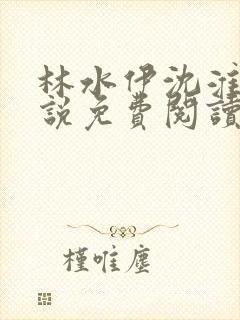 林水伊沈淮
說免費閱讀
槿唯塵